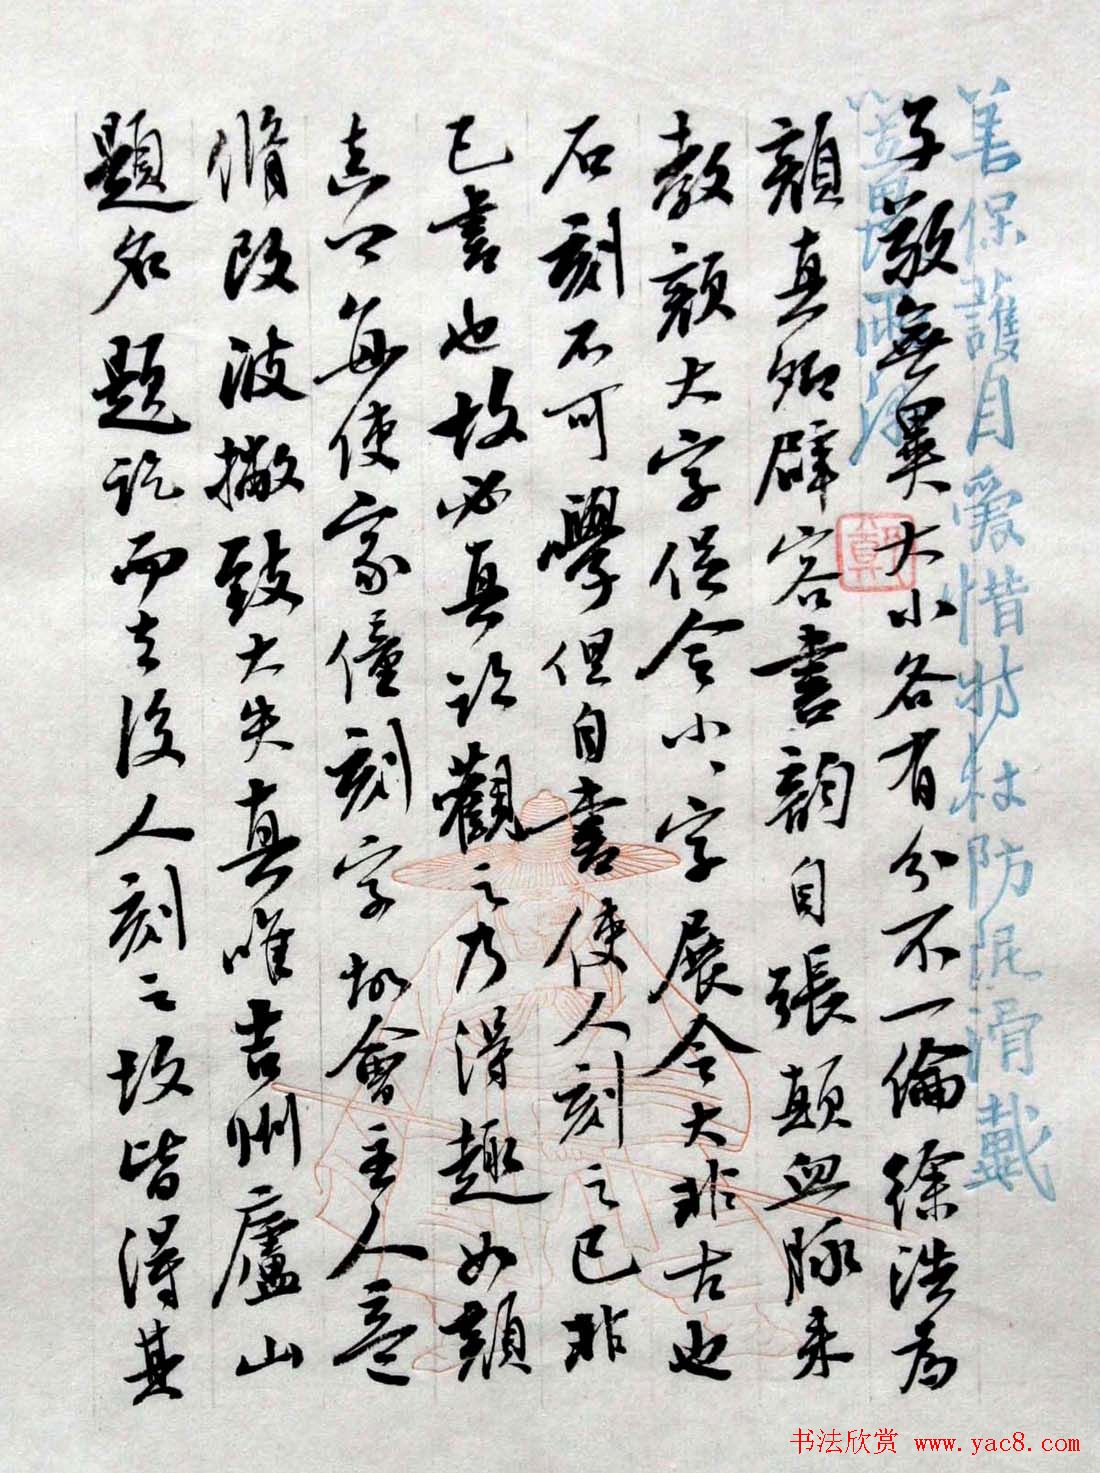 善保護目愛惜特材防泥滑戴
子敬無異大小各有分不一倫徐浩為
顏真卿辟客書韻自張顛血脉来
教顏大字促令小小字展令大非古也
石刻不可學但自書使人刻之已非
已書也故必真跡觀之乃得趣如顏
真卿每使家僮刻字故會主人意
脩改波撇致大失真唯吉州廬山
題名題訖而去後人刻之故皆得其
书法欣赏 www.yac8.com